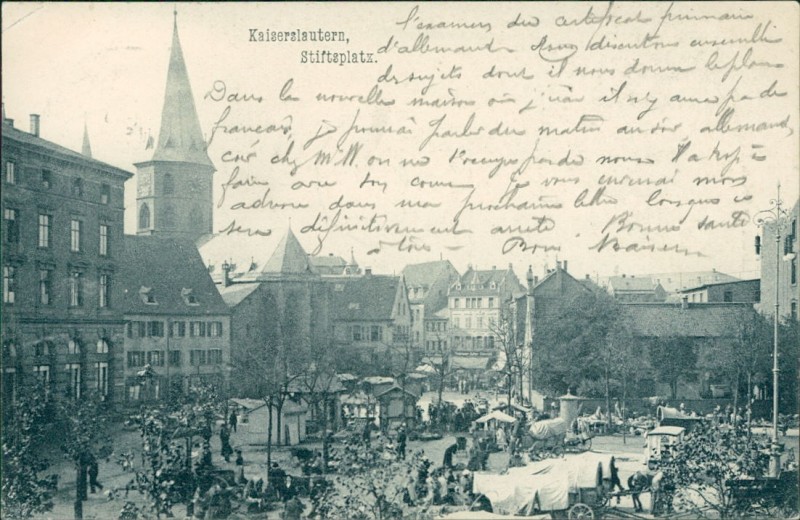 Kaiserslautern,
Stiftsplatz.
l'examen du certificat primaire
d'allemand. Nous discutons ensemble
des sujets dont il nous donne le plan
Dans la nouvelle maison où j'irai il n'y aura pas de
français, je pourrai parler du matin au soir allemand,
car chez M. W. on ne s'occupe pas de nous. Il a trop à
faire avec son cours. Je vous enverrai mon
adresse dans ma prochaine lettre lorsque ce
sera définitivement arrêté. Bonne santé
à tous - Bons baisers